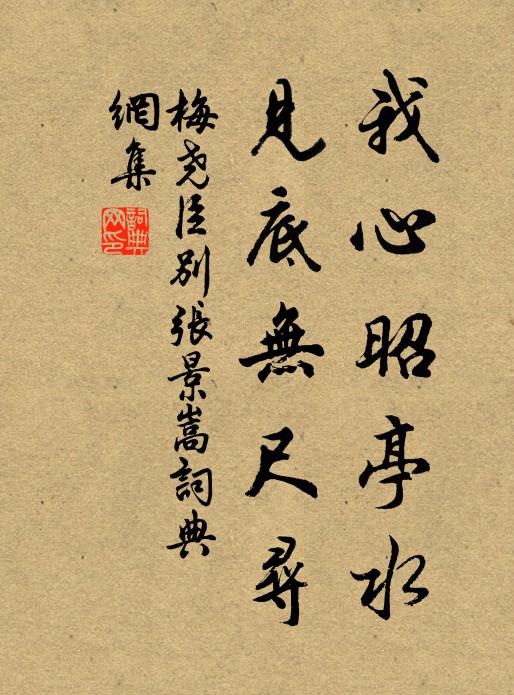 我心昭亭水
見底無尺尋
梅堯臣別張景嵩詞典
網集
詞典
网印